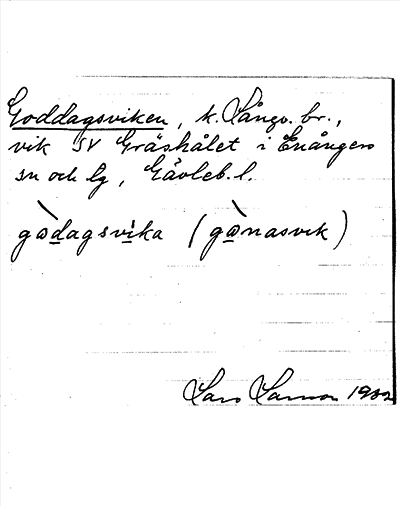 Goddagsviken, k. Långv. br.,
vik SV Gräshålet i Enångers
sn och lg, Gävleb. l.
gòdagsvika (gònasvik)
Lars 19